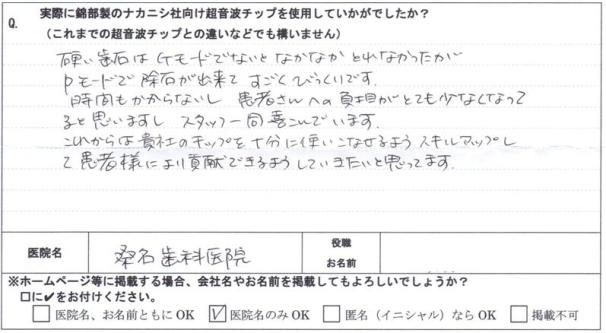 Q. 実際に錦部製のナカニシ社向け超音波チップを使用していかがでしたか？
（これまでの超音波チップとの違いなどでも構いません）
硬い歯石はGモードでないとなかなかとれなかったが
Pモードで除石が出来てすごくびっくりです。
時間もかからないし 患者さんへの負担がとても少なくなって
ると思いますし スタッフ一同喜こんでいます。
これからは貴社のチップを十分に使いこなせるようスキルアップし
て患者様により貢献できるようしていきたいと思ってます。
医院名 桑名歯科医院 役職
お名前
※ホームページ等に掲載する場合、会社名やお名前を掲載してもよろしいでしょうか？
□に✔をお付けください。
□ 医院名、お名前ともに OK ☑ 医院名のみ OK □ 匿名（イニシャル）なら OK □ 掲載不可